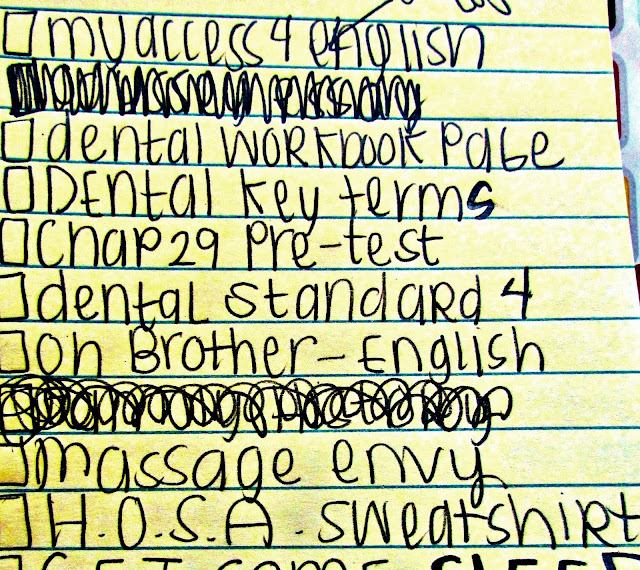 ☐ myaccess 4 english
☐ dental workbook Page
☐ DEntal key terms
☐ Chap 29 Pre-test
☐ dental standard 4
☐ oh Brother - English
☐ massage envy
☐ H.O.S.A. sweatshirt
☐ GET SOME SLEEP